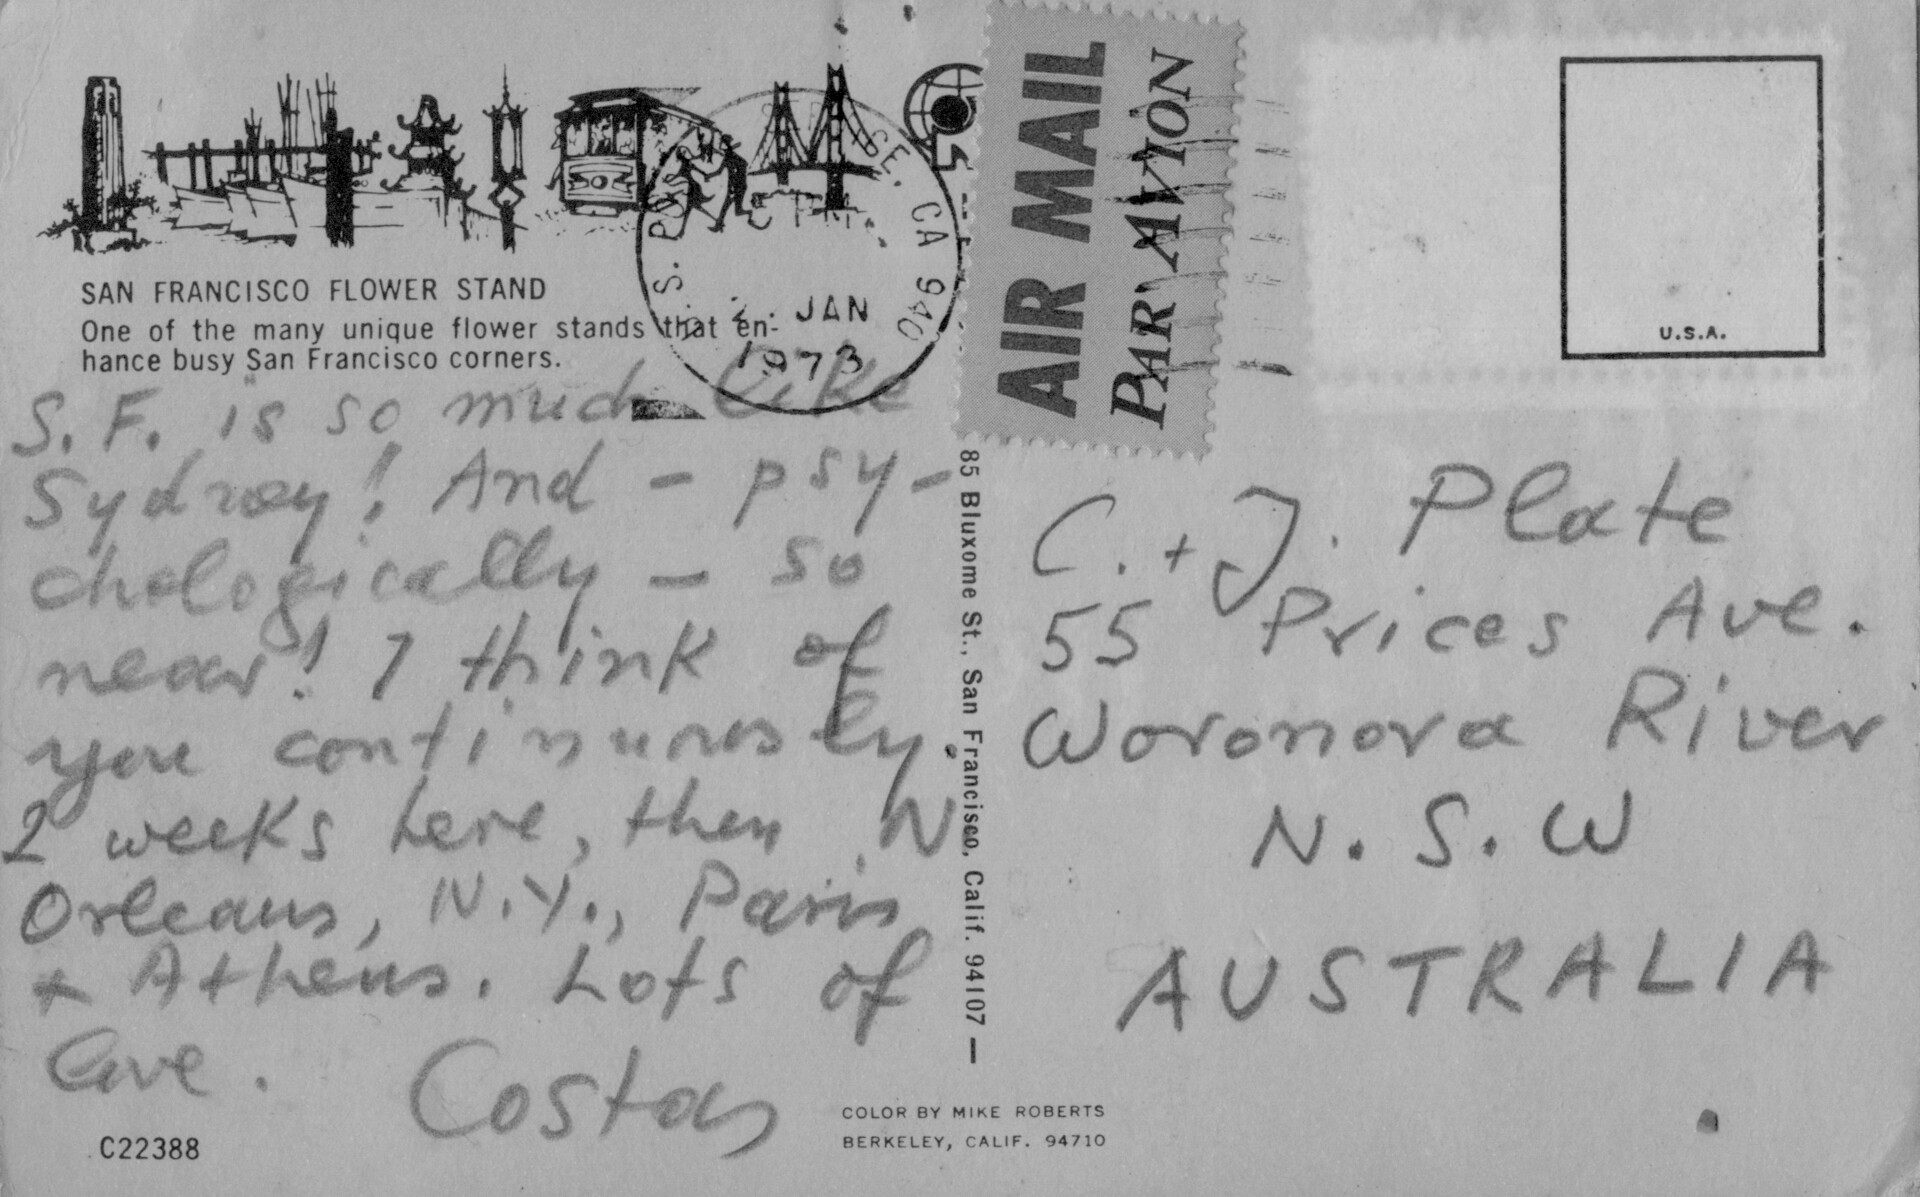 SAN FRANCISCO FLOWER STAND
One of the many unique flower stands that en-
hance busy San Francisco corners.
S. F. is so much like
Sydney! And - psy-
chologically - so
near! I think of
you continuously.
2 weeks here, then N
Orleans, N.Y., Paris
+ Athens. Lots of
love. Costas
C22388
U.S. CA 940
JAN
1973
AIR MAIL
PAR AVION
U.S.A.
85 Bluxome St., San Francisco, Calif. 94107 —
C. + J. Plate
55 Prices Ave.
Woronora River
N. S. W
AUSTRALIA
COLOR BY MIKE ROBERTS
BERKELEY, CALIF. 94710